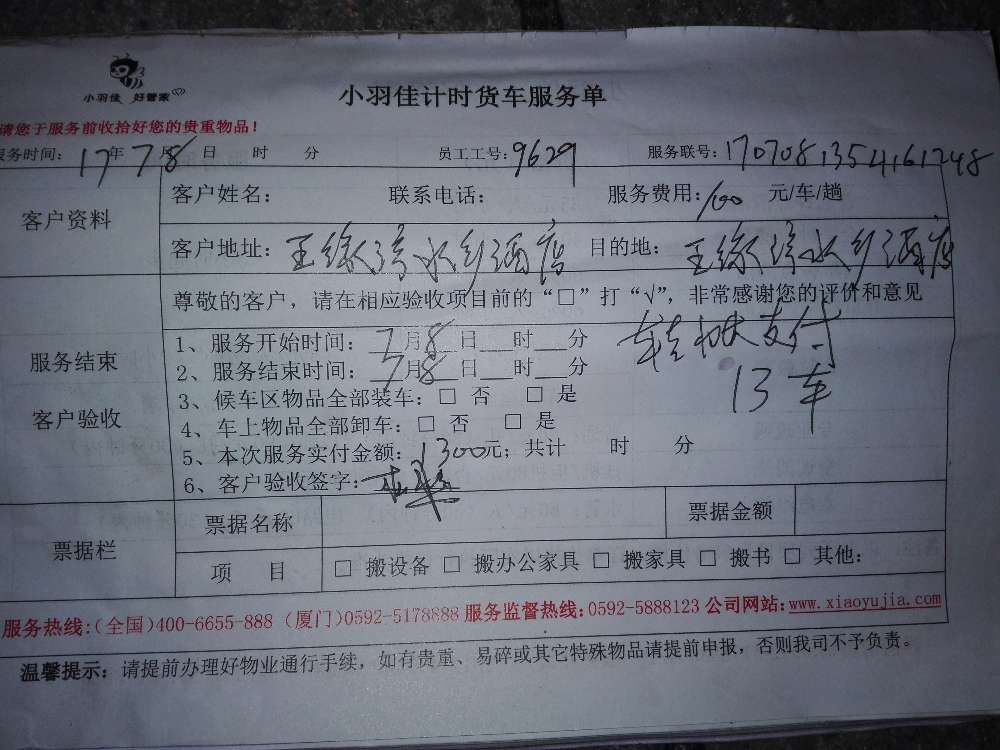 小羽佳 好管家
小羽佳计时货车服务单
请您于服务前收拾好您的贵重物品！
服务时间：17年7月8日 时 分 员工工号：9629 服务联号：1707081354161248
客户资料
客户姓名： 联系电话： 服务费用：100 元/车/趟
客户地址： 水乡酒店 目的地： 水乡酒店
尊敬的客户，请在相应验收项目前的“□”打“√”，非常感谢您的评价和意见
服务结束
客户验收
1、服务开始时间：7月8日 时 分
2、服务结束时间：7月8日 时 分
支付
13车
3、候车区物品全部装车：□ 否 □ 是
4、车上物品全部卸车：□ 否 □ 是
5、本次服务实付金额：1300元；共计 时 分
6、客户验收签字：
票据栏
票据名称 票据金额
项 目 □ 搬设备 □ 搬办公家具 □ 搬家具 □ 搬书 □ 其他：
服务热线：(全国)400-6655-888 (厦门)0592-5178888 服务监督热线：0592-5888123 公司网站：www.xiaoyujia.com
温馨提示：请提前办理好物业通行手续，如有贵重、易碎或其它特殊物品请提前申报，否则我司不予负责。